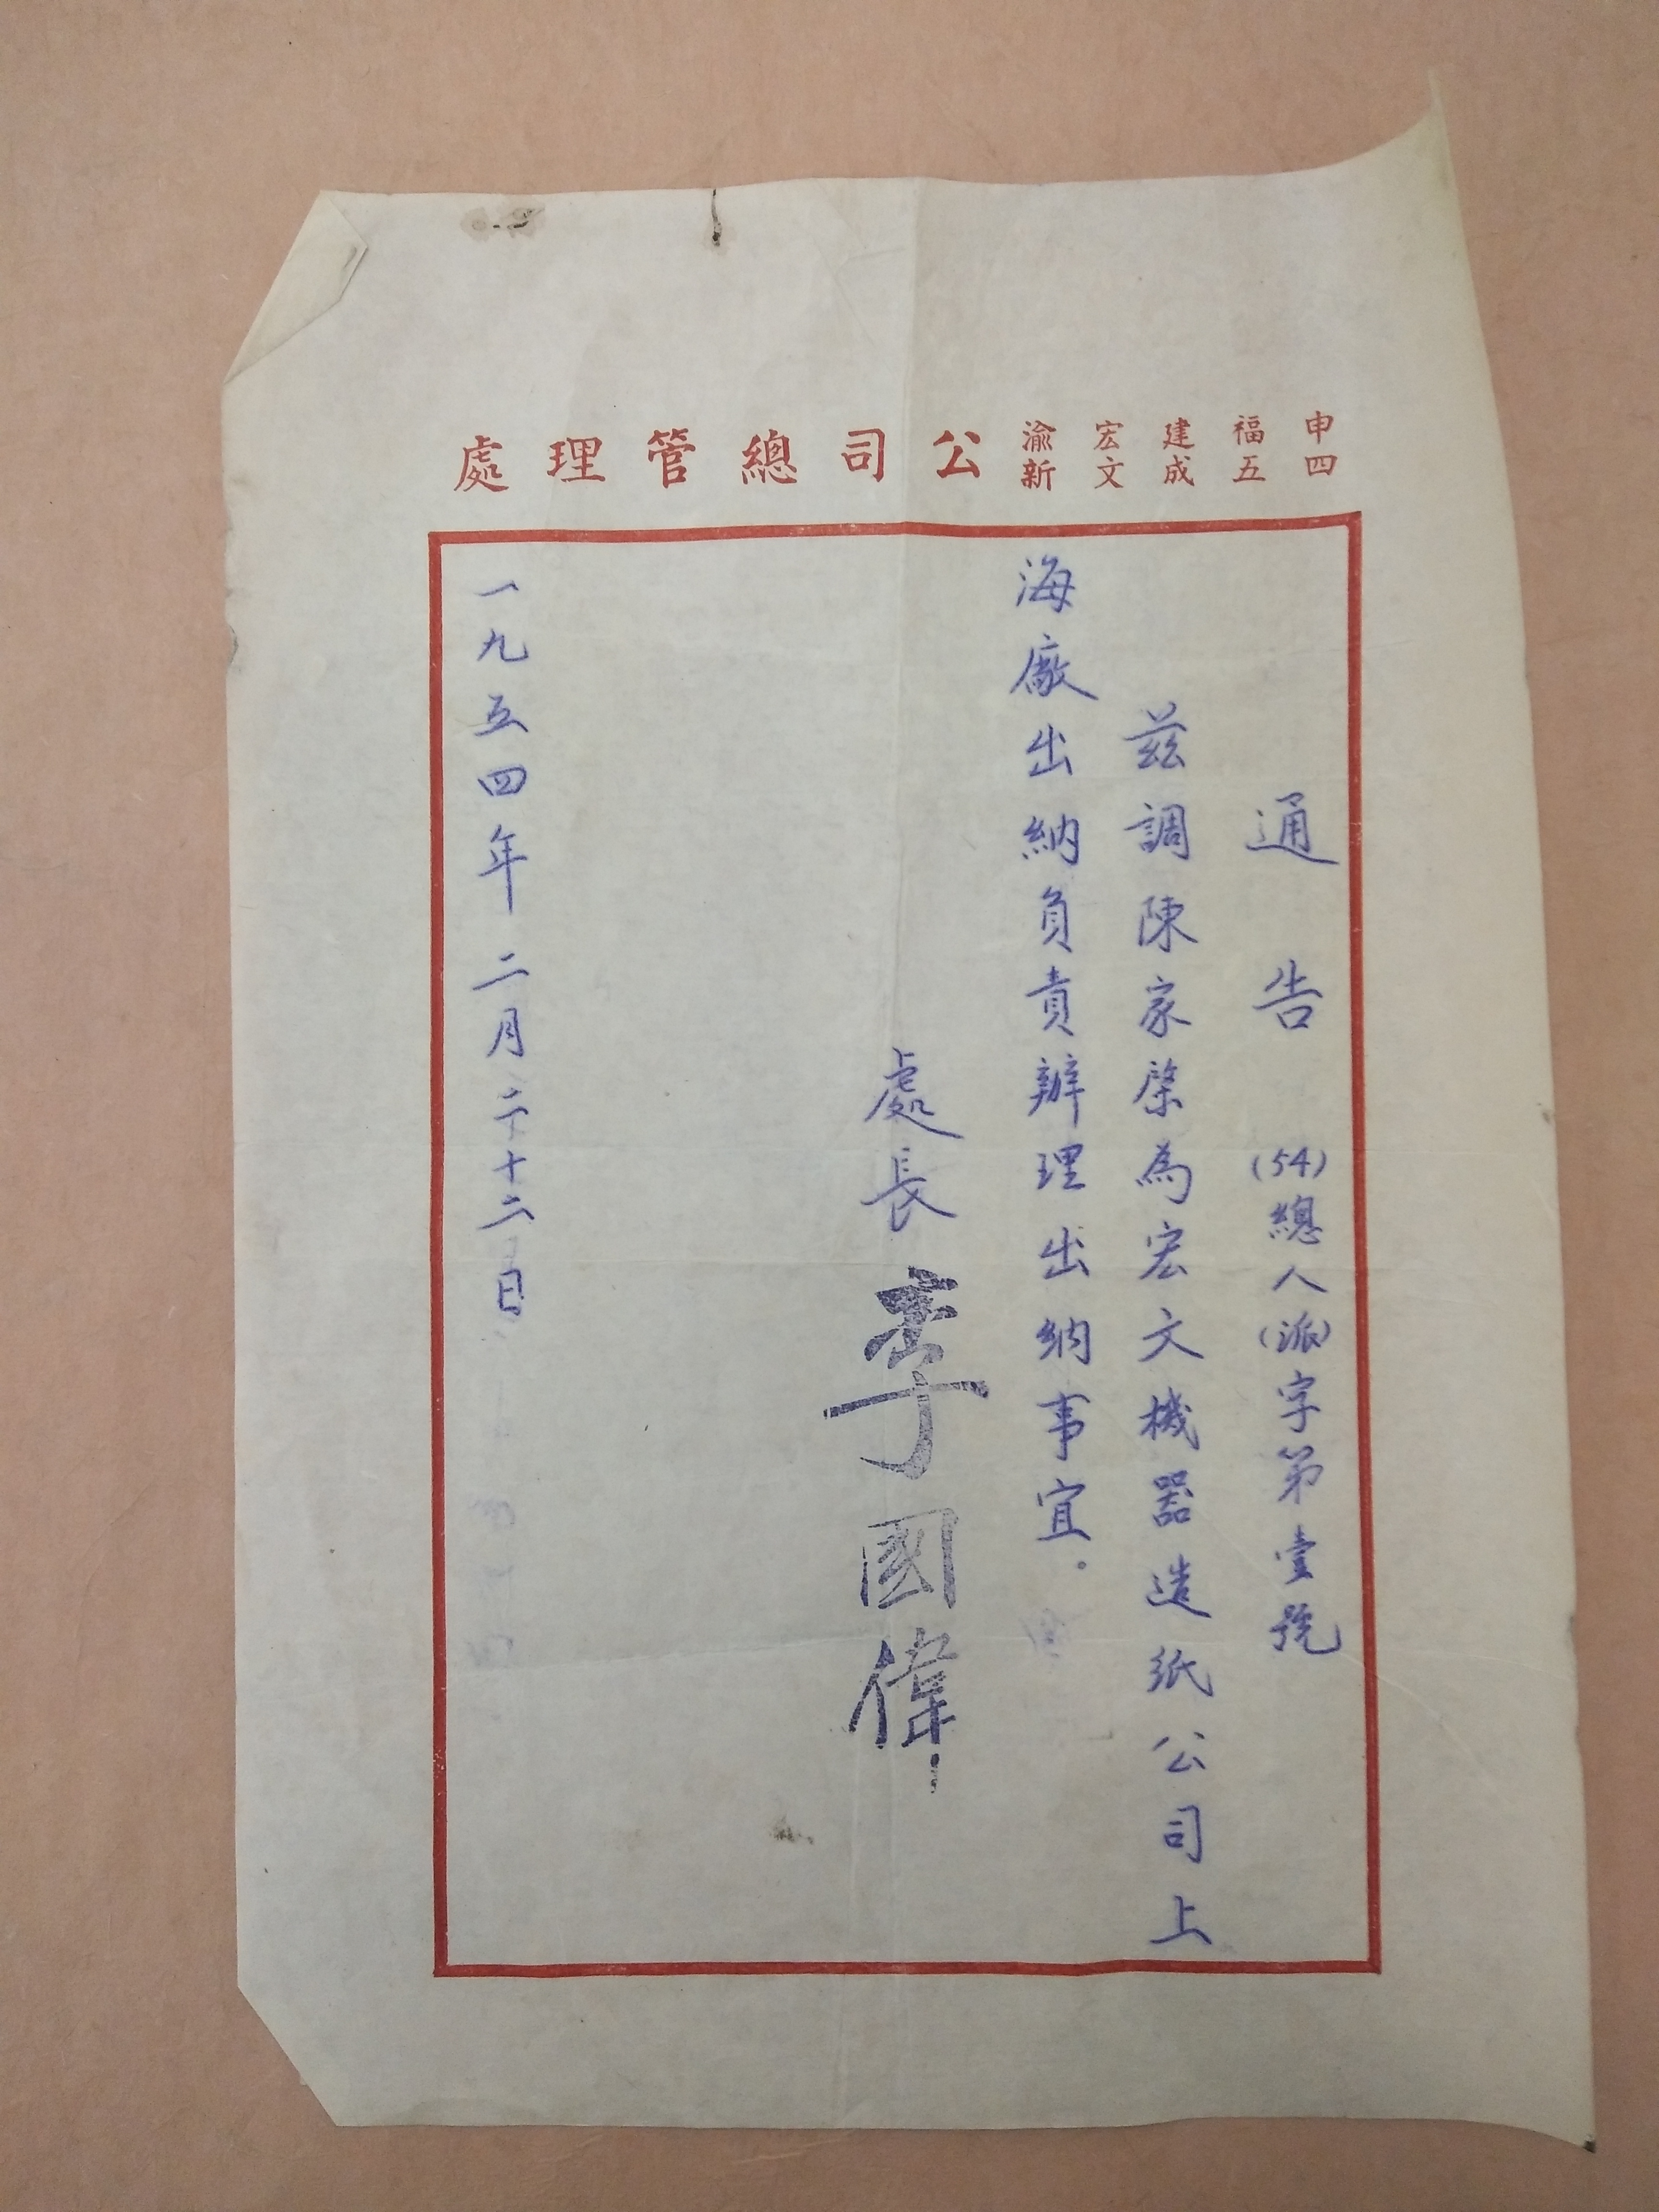 申四 福五 建成 宏文 渝新 公司總管理處
通告 (54)總人(派)字第壹號
茲調陳家棨為宏文機器造紙公司上
海廠出納負責辦理出納事宜。
處長 李國偉
一九五四年二月二十二日